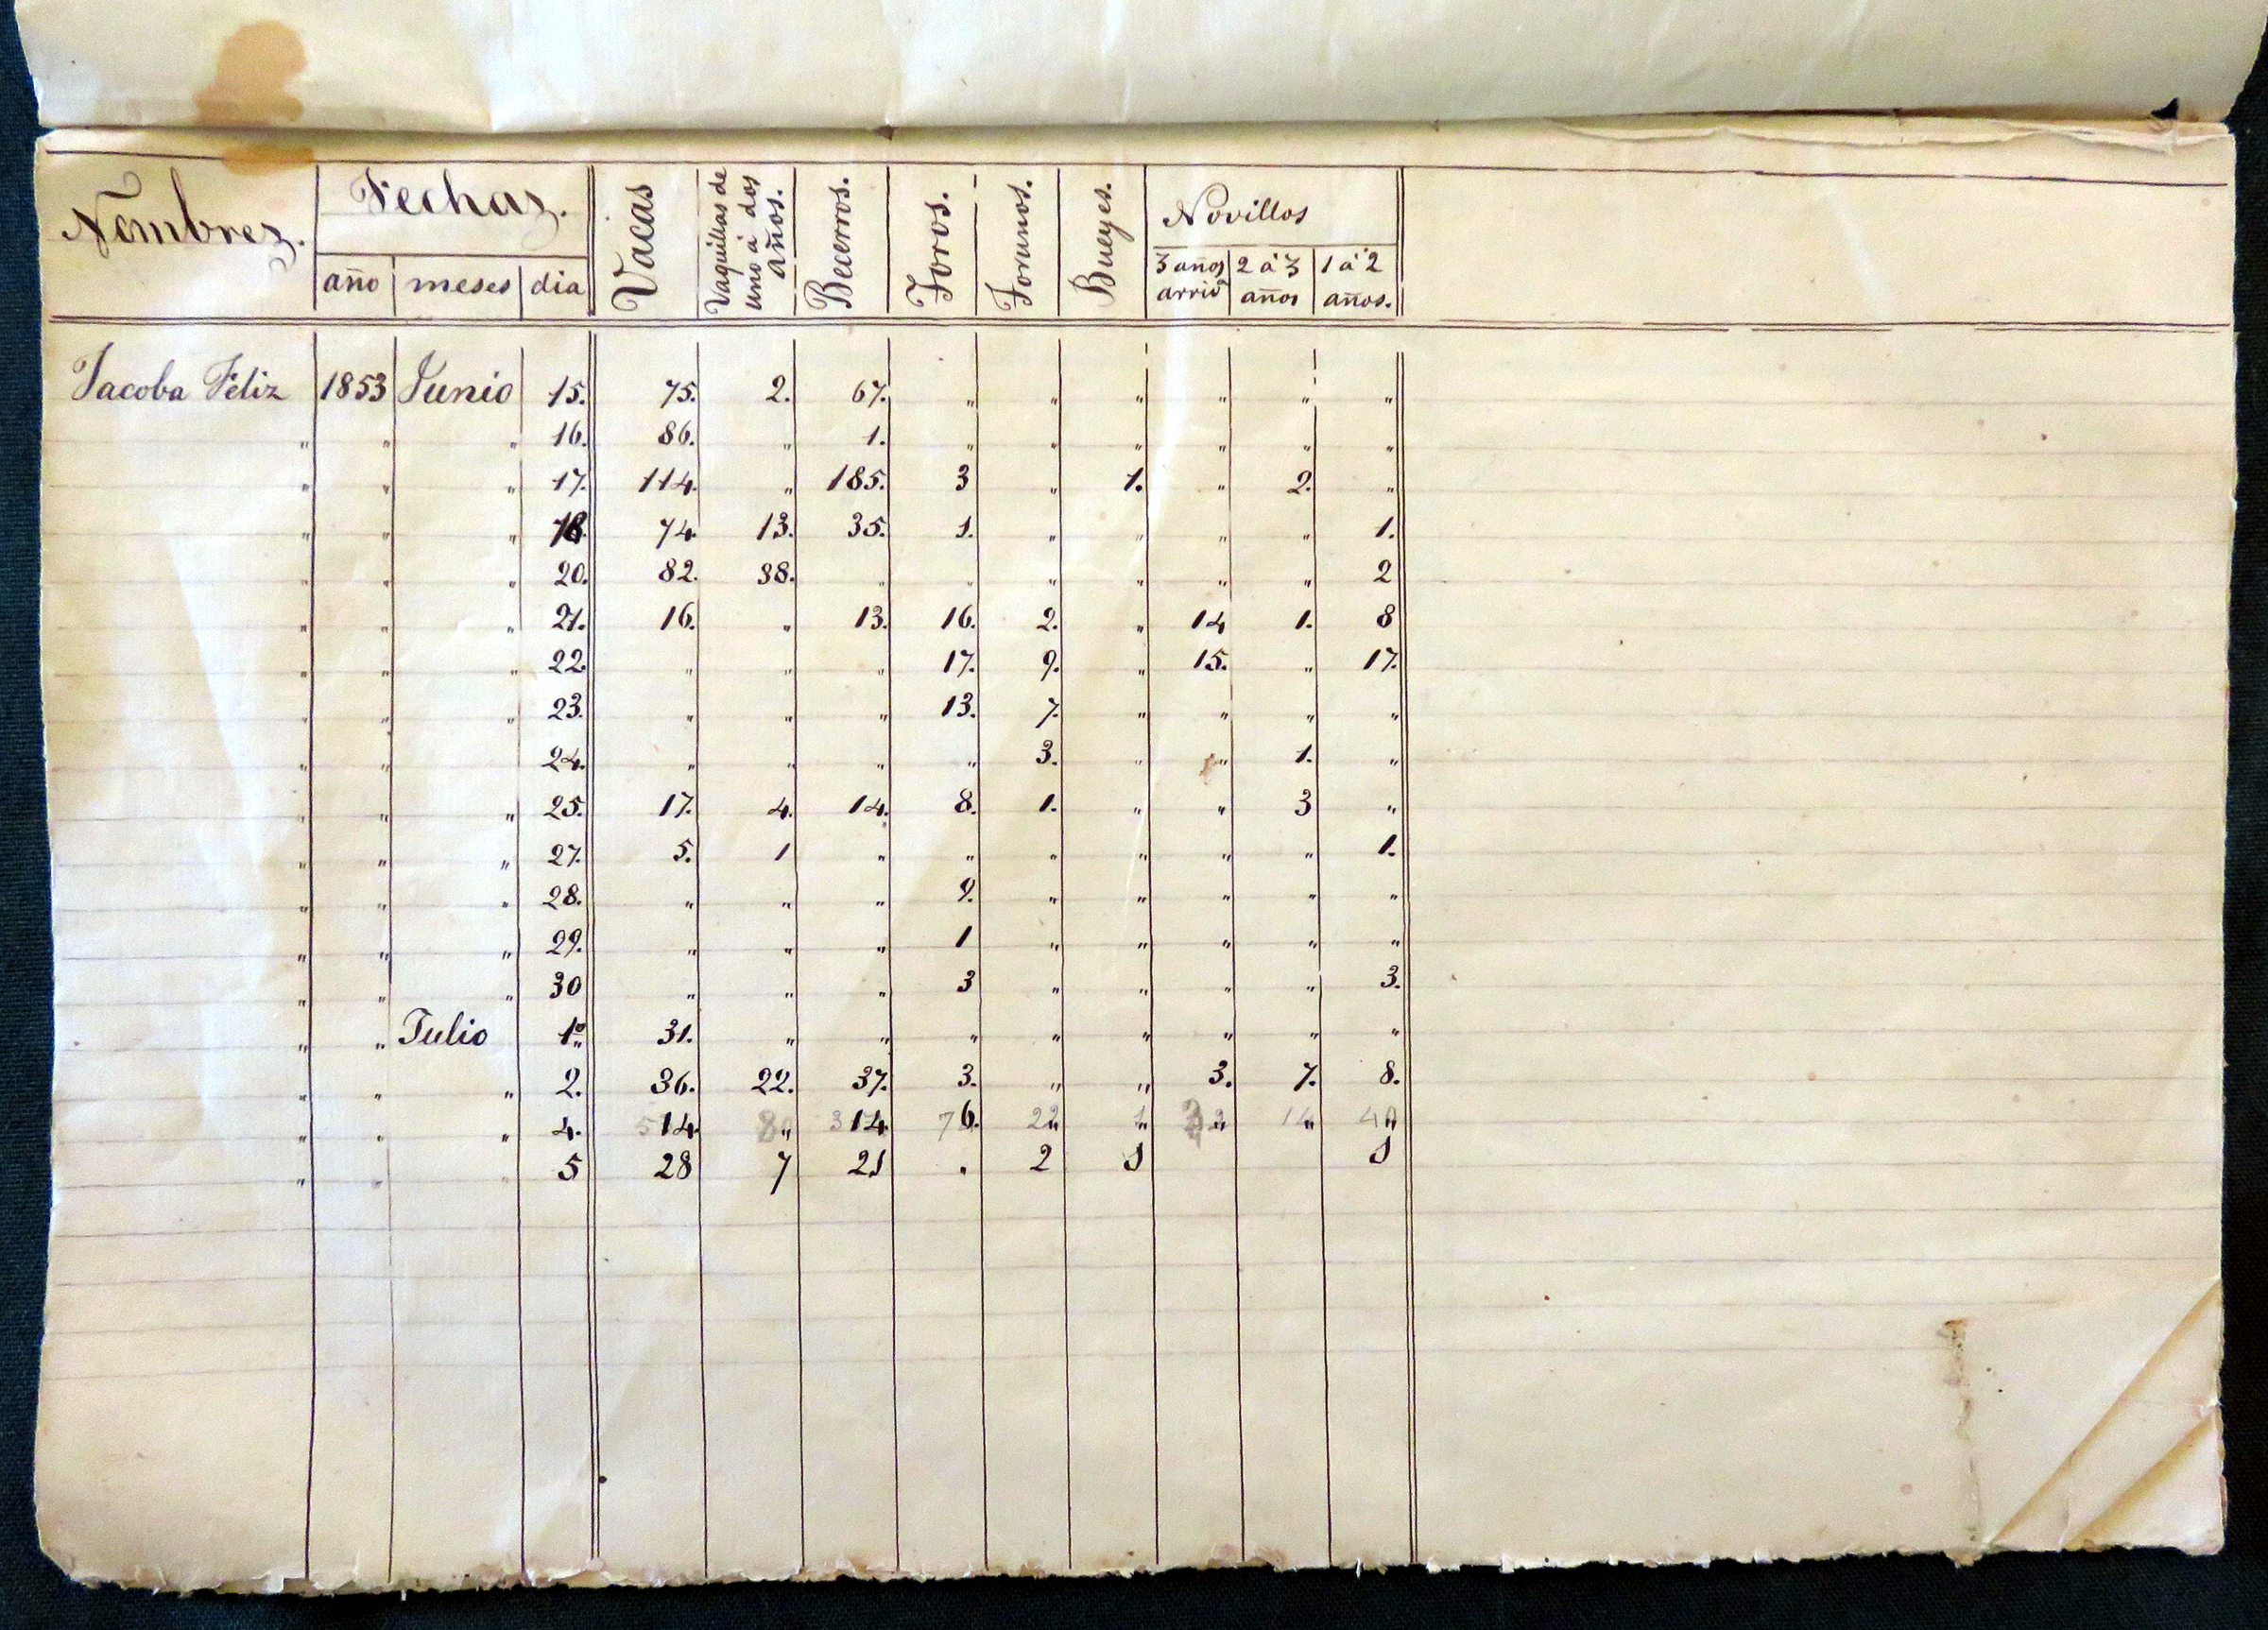 Nombrez. Fechaz. Vacas Vaquillas de uno á dos años. Becerros. Toros. Torunos. Bueyes. Novillos
año meses dia 3 años arriv 2 á 3 años 1 á 2 años.
Jacoba Féliz 1853 Junio 15. 75. 2. 67. " " " " " "
" " " 16. 86. " 1. " " " " " "
" " " 17. 114. " 185. 3 " 1. " 2. "
" " " 18. 74. 13. 35. 1. " " " " 1.
" " " 20. 82. 38. " " " " " " 2
" " " 21. 16. " 13. 16. 2. " 14 1. 8
" " " 22. " " " 17. 9. " 15. " 17.
" " " 23. " " " 13. 7. " " " "
" " " 24. " " " " 3. " " 1. "
" " " 25. 17. 4. 14. 8. 1. " " 3 "
" " " 27. 5. 1 " " " " " " 1.
" " " 28. " " " 9. " " " " "
" " " 29. " " " 1 " " " " "
" " " 30 " " " 3 " " " " 3.
" " Julio 1º 31. " " " " " " " "
" " " 2. 36. 22. 37. 3. " " 3. 7. 8.
" " " 4. 514. " 314. 76. 22 1 2 14
" " " 5 28 7 21 . 2 1 1